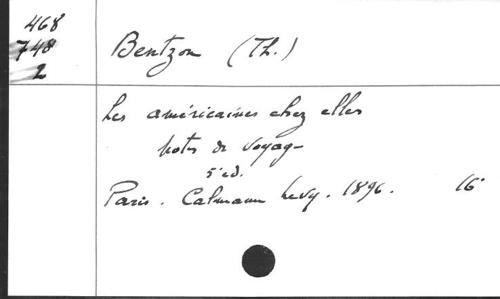 468
748
2
Bentzon (Th.)
Les américaines chez elles
notes de voyag
5e ed.
Paris. Calmann Levy. 1896. 16°